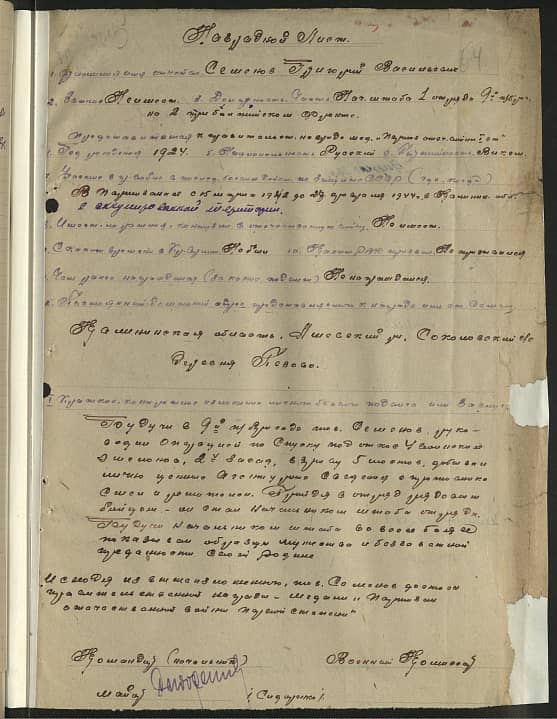 Наградной Лист.
64
1. Фамилия имя отчество Семенов Григорий Васильевич
2. Звание Не имеет. 3. Должность, часть Нач. штаба 1 отряда 9й п/бриг.
на 2 прибалтийском фронте.
Представляется к правительст. награде мед. "Парт. отеч. войны" ст"
4. Год рождения 1924. 5. Национальность Русский 6. Партийность Влксм.
7. Участие в
В Партизанах с 15 марта 1942 до 29 февраля 1944 г. Калинин. обл.
в оккупированной территории.
8. Имеет ли ранения, контузии в отечественную войну Не имеет.
9. С какого времени в Кр. Армии Не был 10. Каким РВК призван Не призывался
11. Чем ранее награждался (за какие подвиги) Не награждался.
12. Постоянный домашний адрес представляемого к награде
Калининская область, район, Соколовский с/с
деревня
I Краткое, конкретное изложение личного боевого подвига или заслуг
Будучи в 9й п/бригаде тов. Семенов, руко-
водил Операцией по Спуску под откос 4 воинских
Эшелонов, 2х засад, взорву 5 мостов, добывал
лично ценные Агентурные Сведения о противнике
Придя в отряд рядовым
бойцом - он стал Начальником штаба отряда.
Будучи Начальником штаба во всем боях
показывал образцы мужества и беззаветной
преданности своей Родине
Исходя из вышеизложенного, тов. Семенов достоин
правительственной награды - медали "Партизан
отечественной войны первой степени"
Командир (начальник) Военный Комиссар
майор